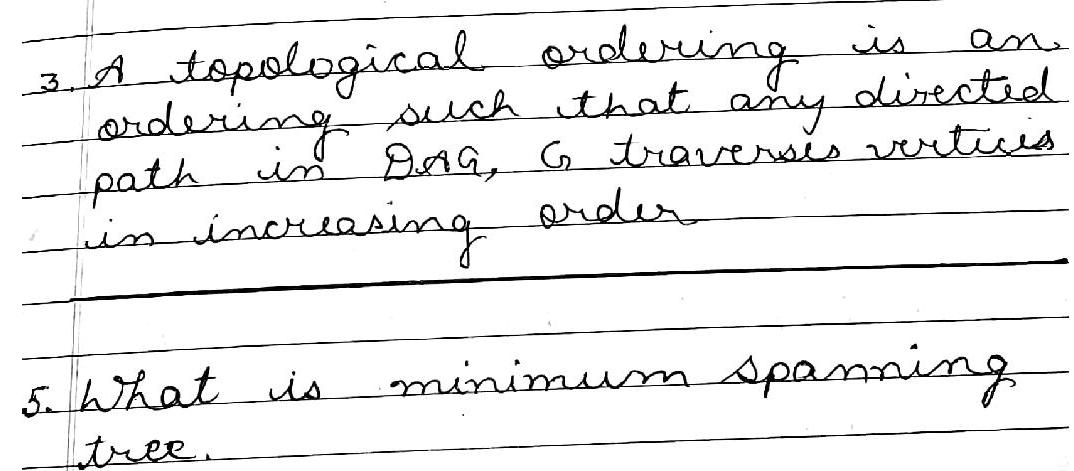 3. A topological ordering is an
ordering such that any directed
path in DAG, G traverses vertices
in increasing order
5. What is minimum spanning
tree.